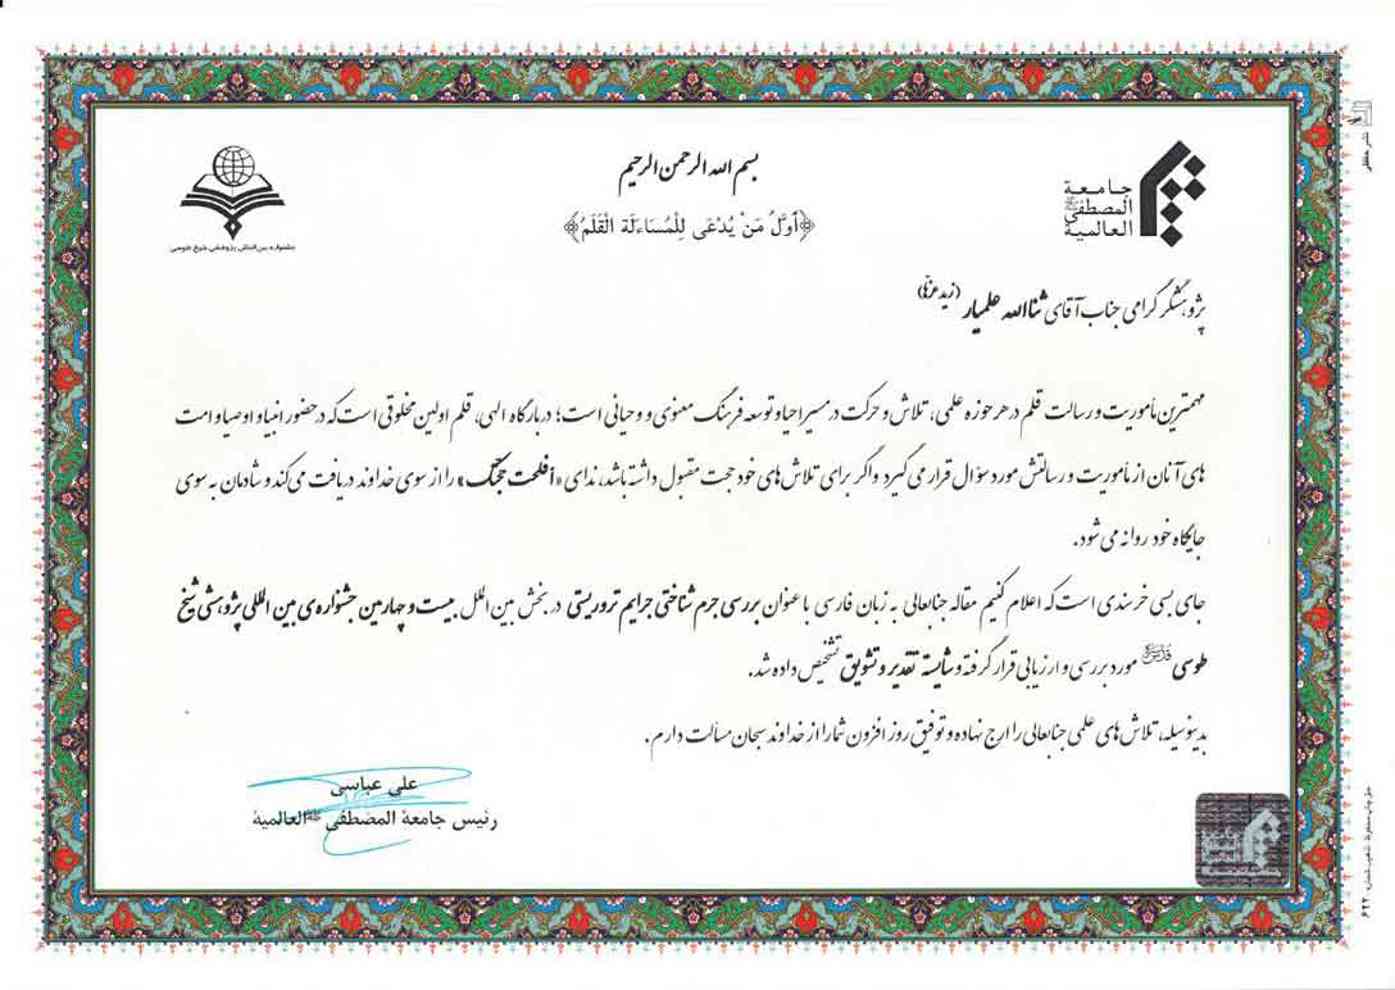 بسم الله الرحمن الرحیم
﴿أَوَّلُ مَنْ يُدْعَى لِلْمُسَاءَلَة الْقَلَمُ﴾
جامعة
المصطفی
العالمیة
جشنواره بین‌المللی پژوهشی شیخ طوسی
پژوهشگر گرامی جناب آقای ثناالله علمیار (زید عزّه)
مهمترین مأموریت و رسالت قلم در هر حوزه علمی، تلاش و حرکت در مسیر احیا و توسعه فرهنگ معنوی و وحیانی است؛ در بارگاه الهی، قلم اولین مخلوقی است که در حضور انبیا و اوصیا و امت
های آنان از مأموریت و رسالتش مورد سؤال قرار می گیرد و اگر برای تلاش های خود حجت مقبول داشته باشد، ندای «أفلحت حجتک» را از سوی خداوند دریافت می کند و شادمان به سوی
جایگاه خود روانه می شود.
جای بسی خرسندی است که اعلام کنیم مقاله جنابعالی به زبان فارسی با عنوان بررسی جرم شناختی جرایم تروریستی در بخش بین الملل بیست و چهارمین جشنواره ی بین المللی پژوهشی شیخ
طوسی مورد بررسی و ارزیابی قرار گرفته و شایسته تقدیر و تشویق تشخیص داده شد.
بدینوسیله، تلاش های علمی جنابعالی را ارج نهاده و توفیق روز افزون شما را از خداوند سبحان مسألت دارم.
علی عباسی
رئیس جامعة المصطفی العالمیة